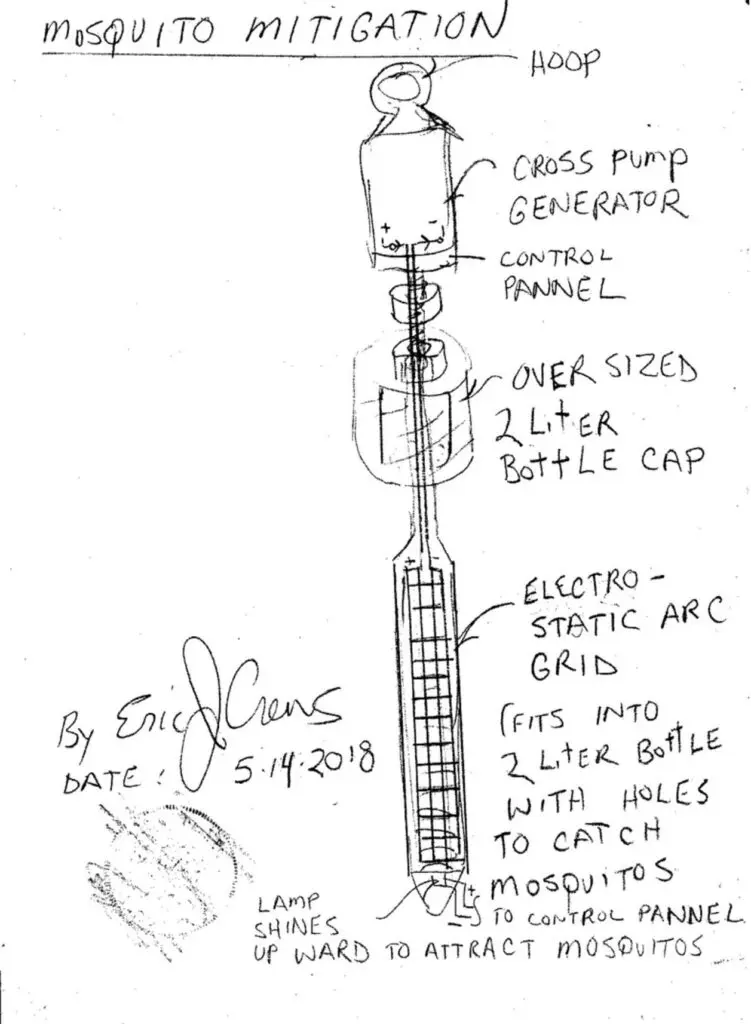 MOSQUITO MITIGATION
HOOP
CROSS PUMP
GENERATOR
+ -
CONTROL
PANNEL
OVER SIZED
2 LITER
BOTTLE CAP
+ -
ELECTRO-
STATIC ARC
GRID
(FITS INTO
2 LITER BOTTLE
WITH HOLES
TO CATCH
MOSQUITOS
By Eric J Crews
DATE: 5.14.2018
+
- TO CONTROL PANNEL
LAMP
SHINES
UP WARD TO ATTRACT MOSQUITOS